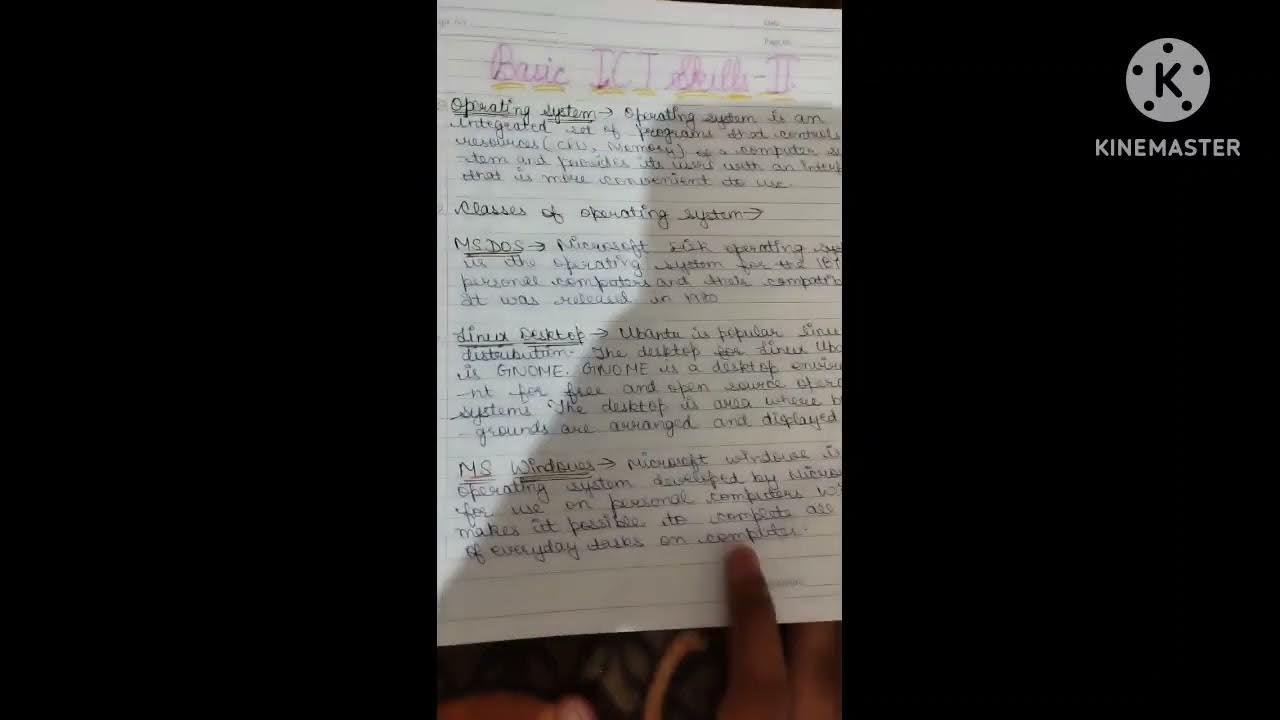 Date
Page No.
Basic ICT Skills-II
Operating system → Operating system is an
integrated set of programs that controls
resources (CPU, Memory) of a computer sy
-tem and provides its users with an interf
that is more convenient to use.
Classes of operating system →
MS.DOS → Microsoft disk operating syst
is the operating system for the IBM
personal computers and their compatib
It was released in
Linux Desktop → Ubantu is popular linu
distribution. The desktop for Linux Uba
is GNOME. GNOME is a desktop enviro
-nt for free and open source opera
systems. The desktop is area where b
-grounds are arranged and displayed
MS Windows → Microsoft windows is
operating system developed by Micros
for use on personal computers Wi
makes it possible to complete all
of everyday tasks on computer.
K
KINEMASTER